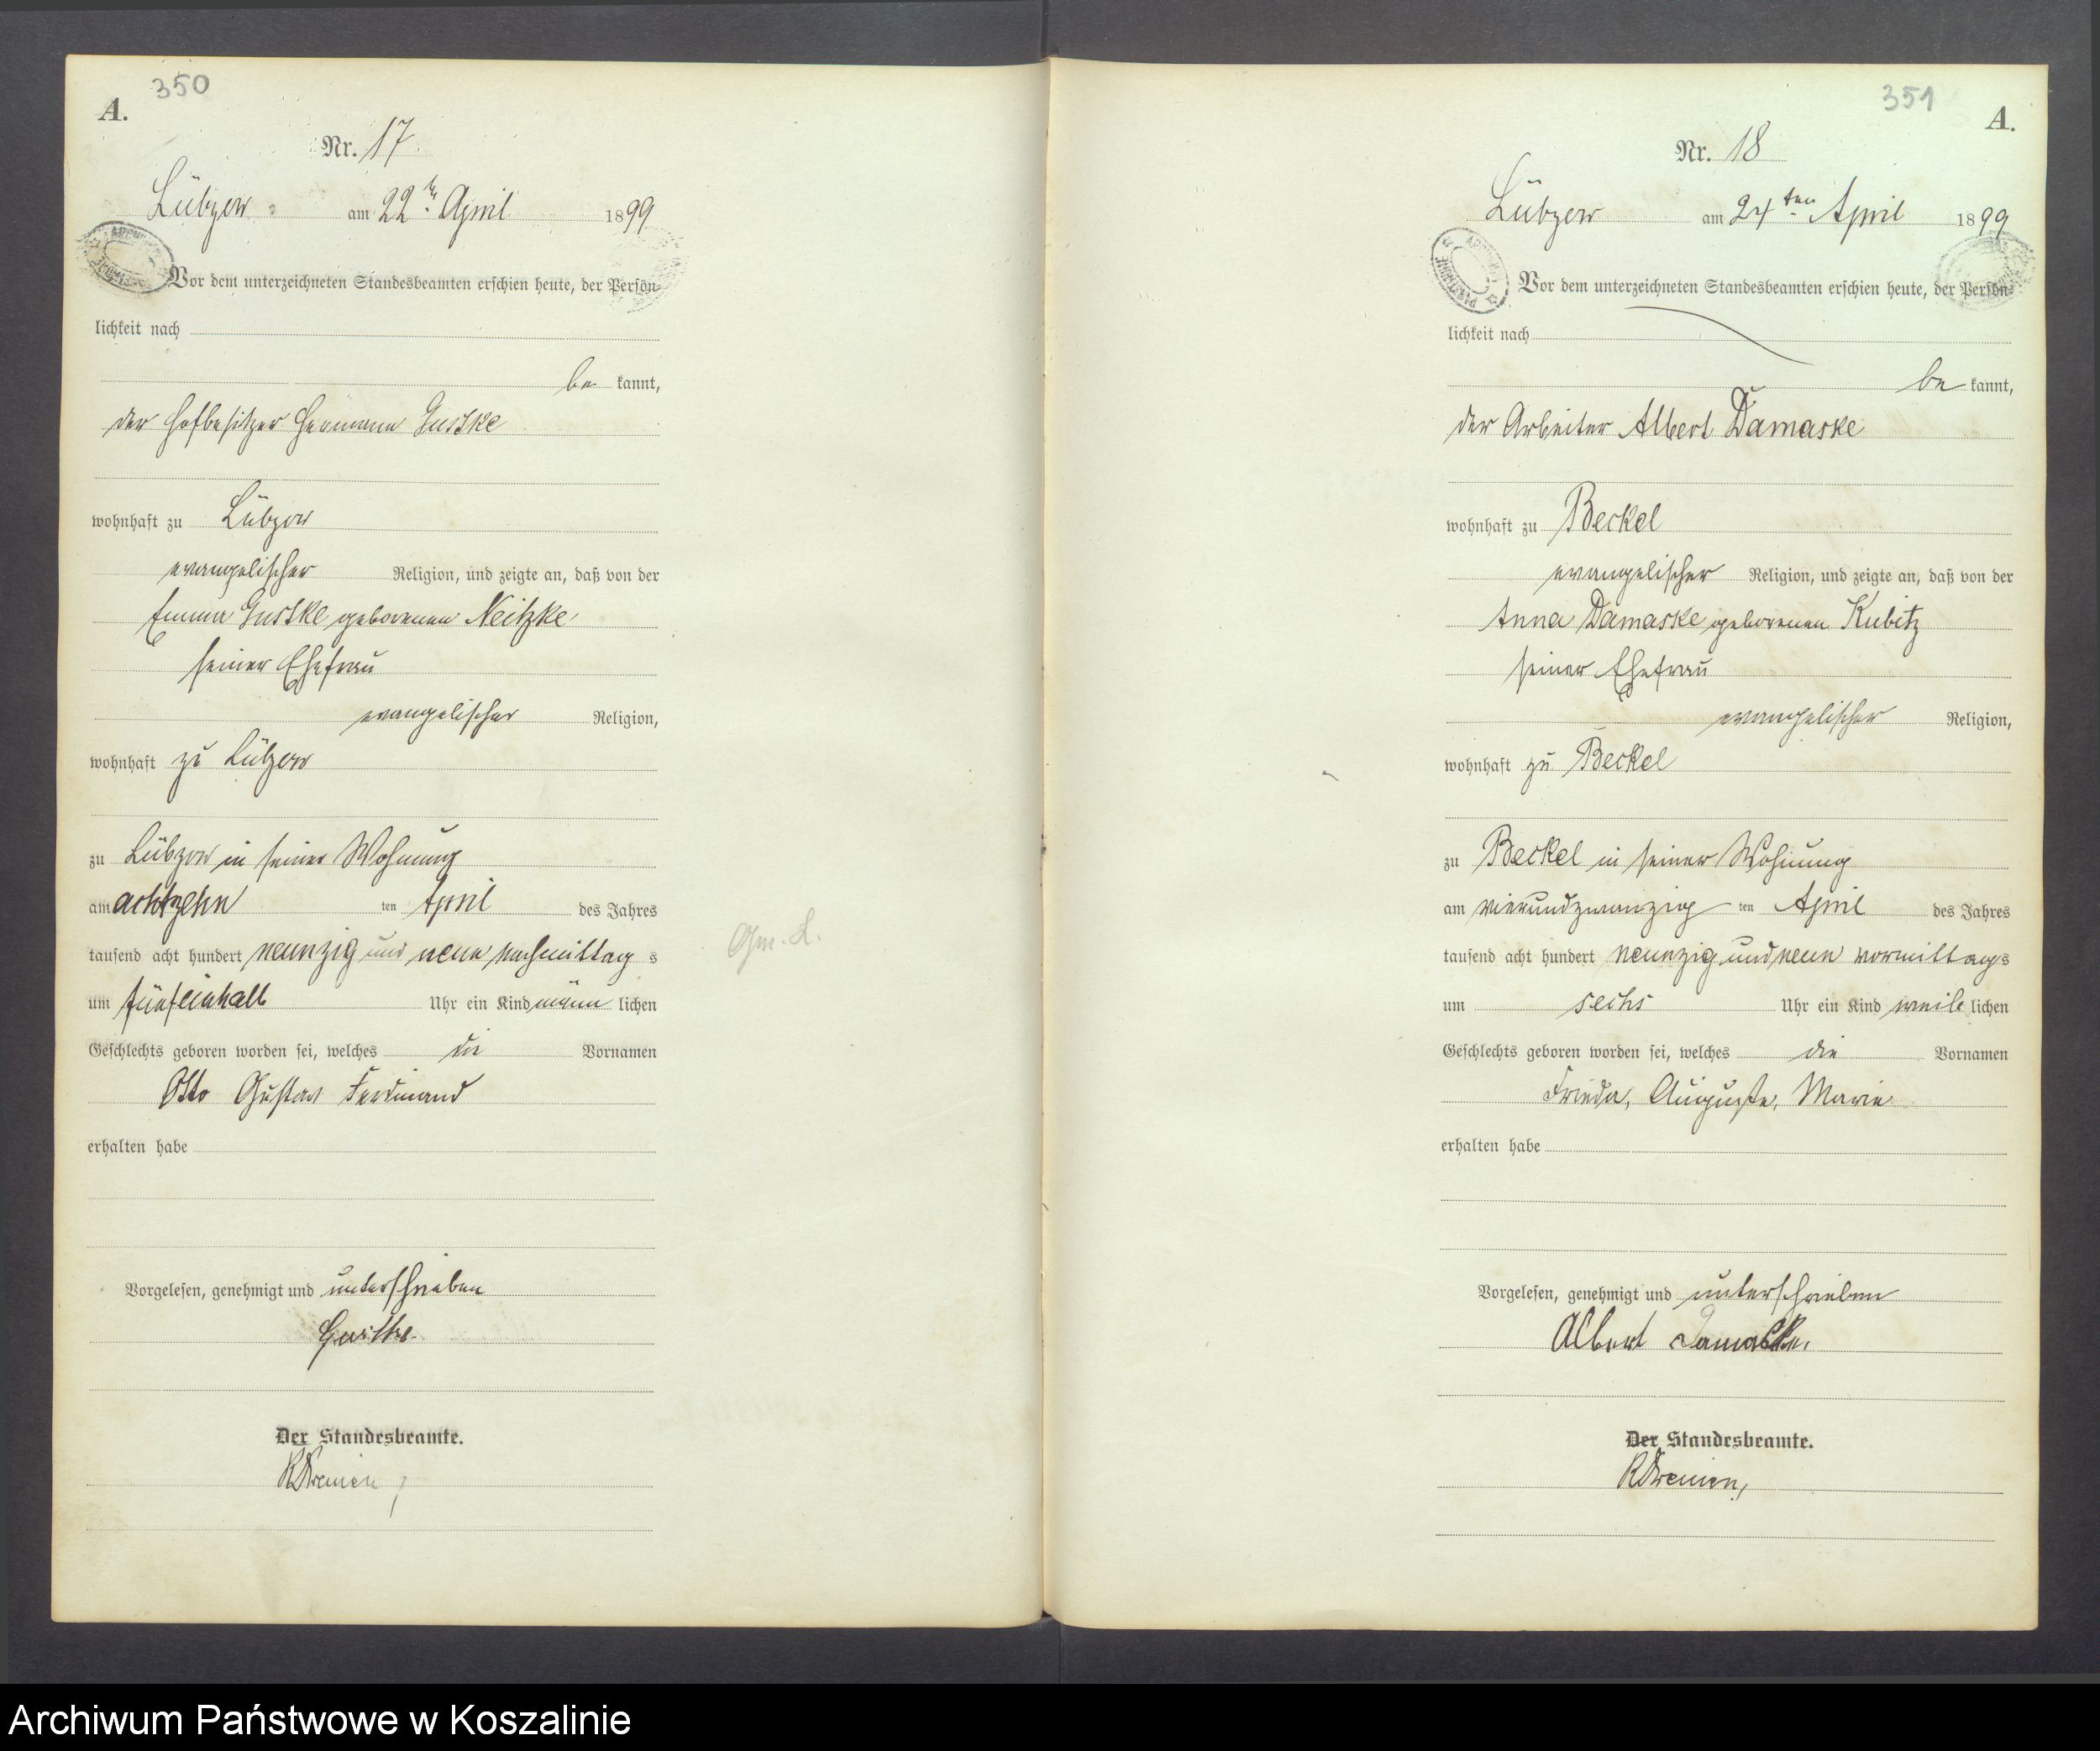 350
A.
Nr. 17
Lübzow am 22ten April 1899
Vor dem unterzeichneten Standesbeamten erschien heute, der Persön-
lichkeit nach
be kannt,
der Hofbesitzer Hermann Guske
wohnhaft zu Lübzow
evangelischer Religion, und zeigte an, daß von der
Emma Guske geborenen Neitzke
seiner Ehefrau
evangelischer Religion,
wohnhaft zu Lübzow
zu Lübzow in seiner Wohnung
am achtzehn ten April des Jahres
tausend acht hundert neunzig und neun nachmittag s
um fünfeinhalb Uhr ein Kind männ lichen
Geschlechts geboren worden sei, welches die Vornamen
Otto Gustav Ferdinand
erhalten habe
Vorgelesen, genehmigt und unterschrieben
Guske.
Der Standesbeamte.
351
A.
Nr. 18
Lübzow am 24ten April 1899
Vor dem unterzeichneten Standesbeamten erschien heute, der Persön-
lichkeit nach
be kannt,
der Arbeiter Albert Damaske
wohnhaft zu Beckel
evangelischer Religion, und zeigte an, daß von der
Anna Damaske geborenen Kubitz
seiner Ehefrau
evangelischer Religion,
wohnhaft zu Beckel
zu Beckel in seiner Wohnung
am vierundzwanzig ten April des Jahres
tausend acht hundert neunzig und neun vormittags
um sechs Uhr ein Kind weib lichen
Geschlechts geboren worden sei, welches die Vornamen
Frieda, Auguste, Marie
erhalten habe
Vorgelesen, genehmigt und unterschrieben
Albert Damaske.
Der Standesbeamte.
Archiwum Państwowe w Koszalinie